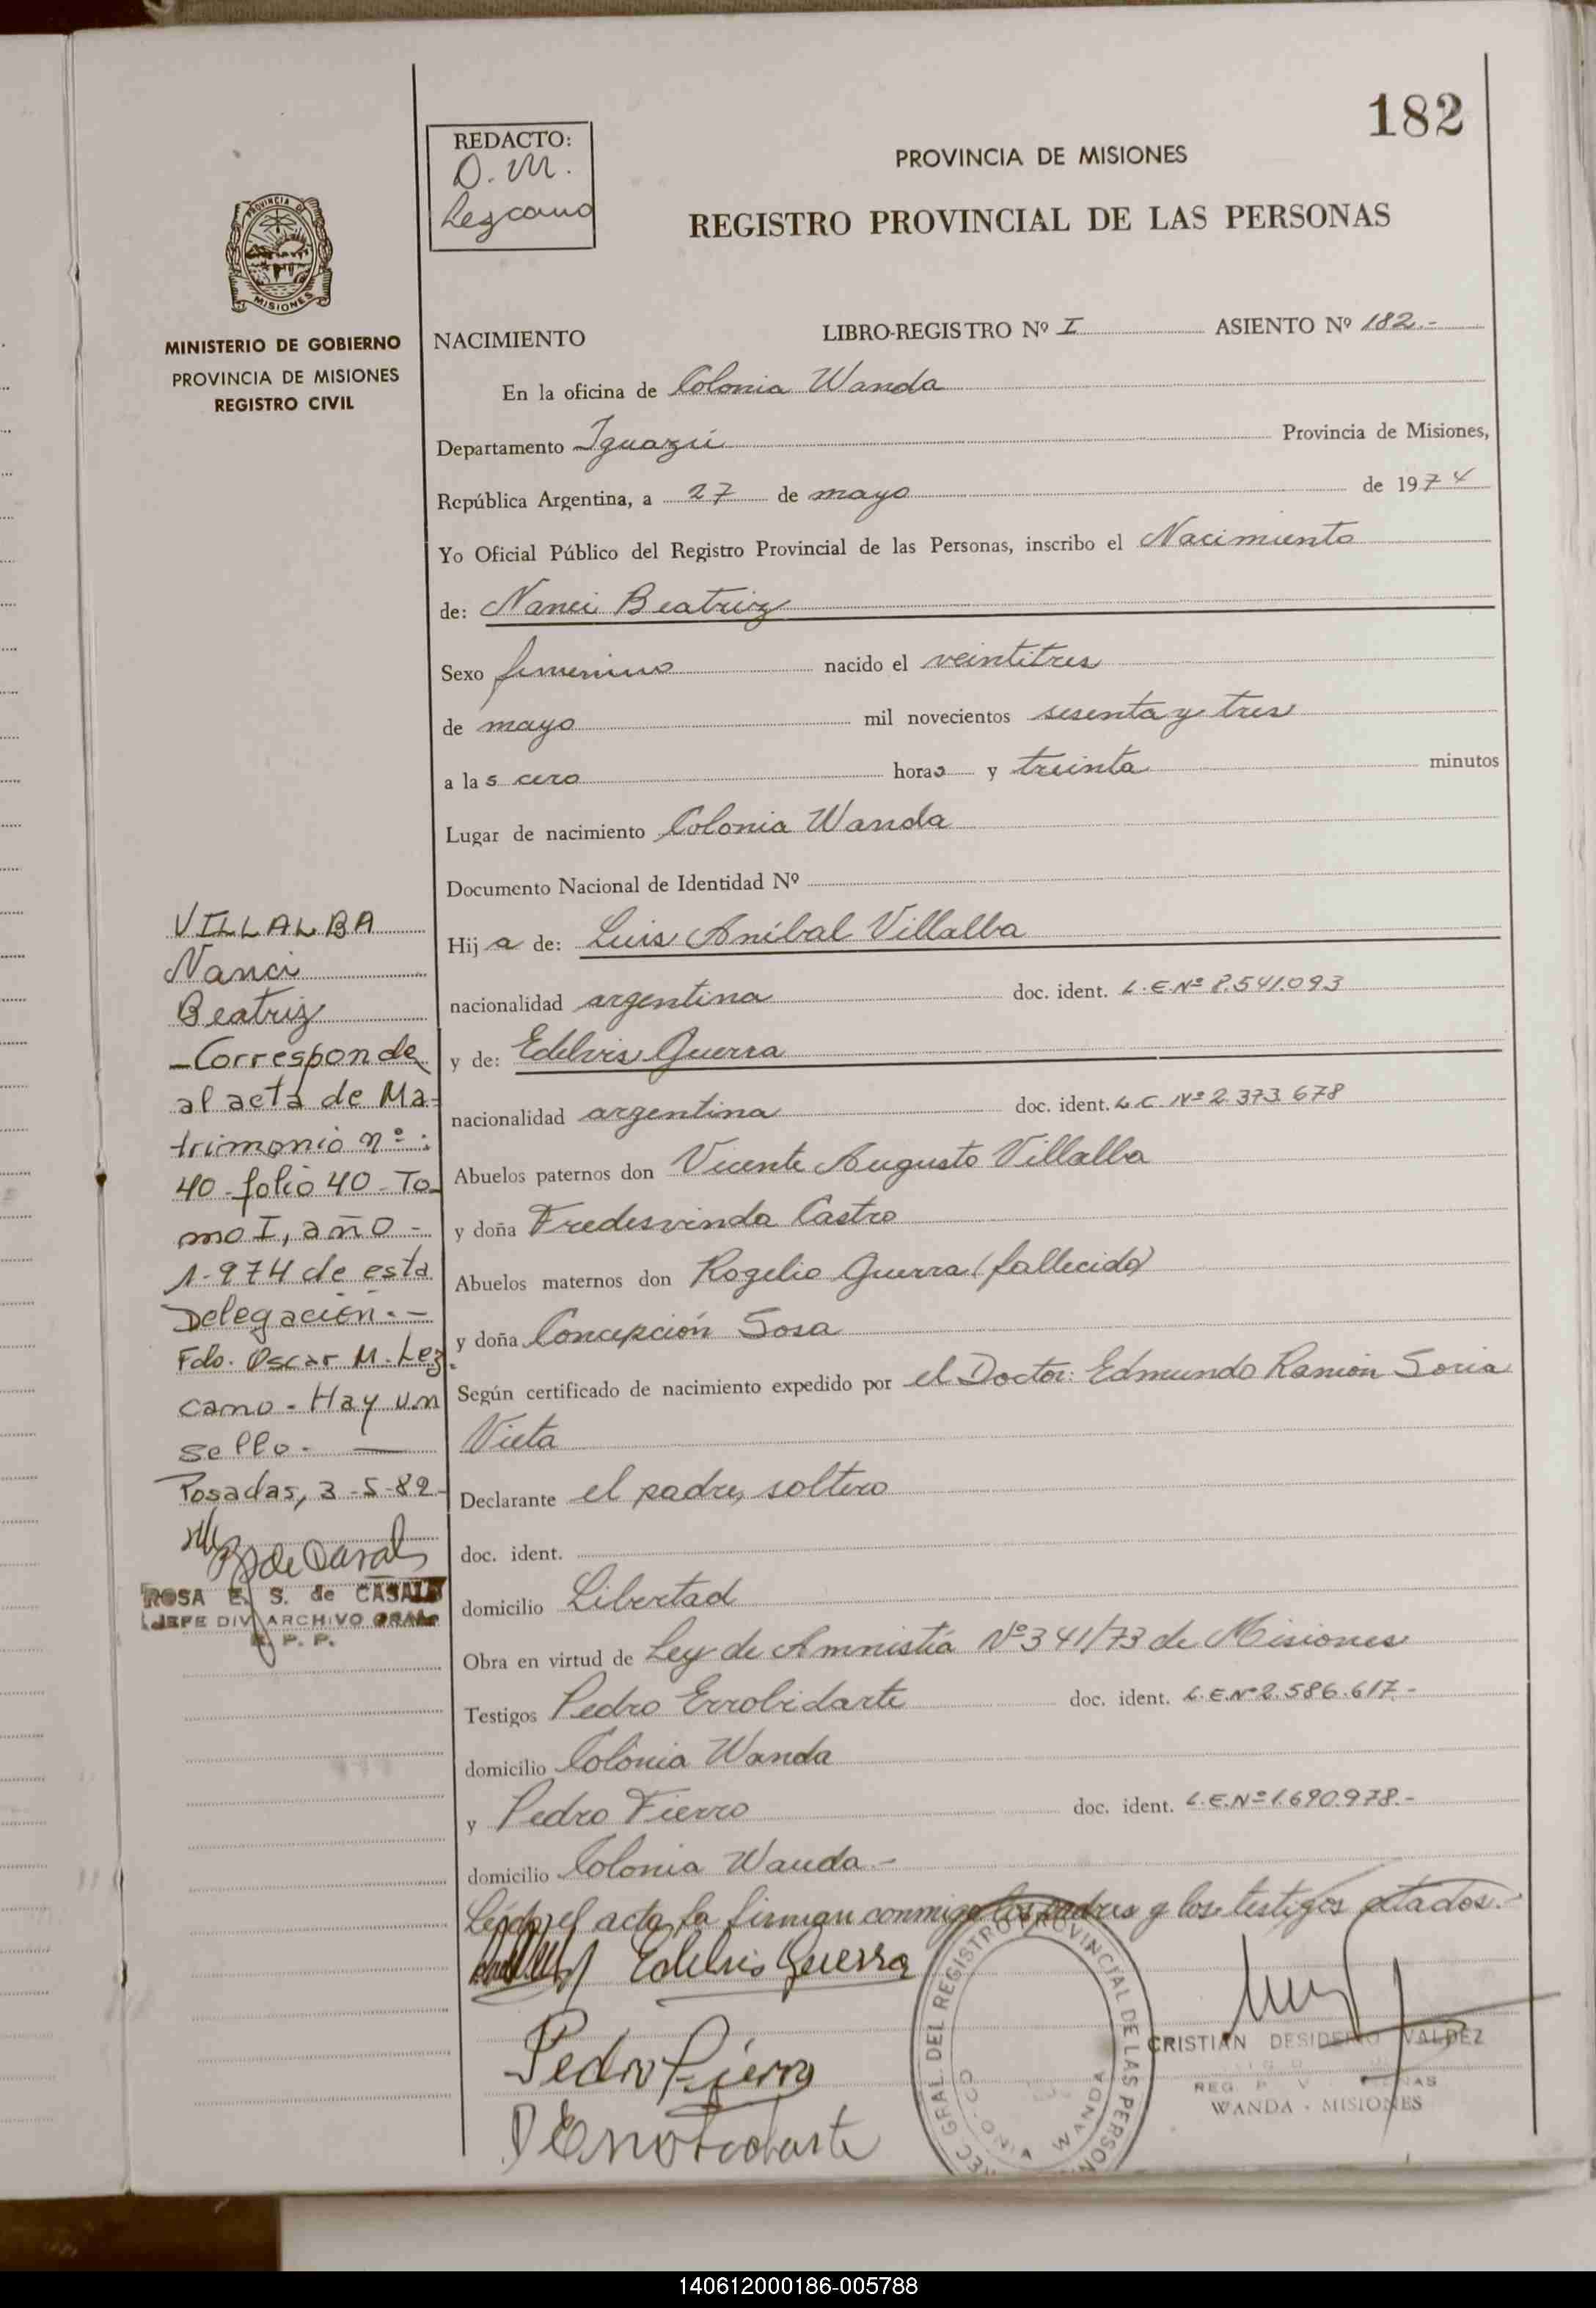 182
REDACTO:
O. M.
Lezcano
PROVINCIA DE MISIONES
REGISTRO PROVINCIAL DE LAS PERSONAS
PROVINCIA DE
MISIONES
MINISTERIO DE GOBIERNO
PROVINCIA DE MISIONES
REGISTRO CIVIL
NACIMIENTO LIBRO-REGISTRO Nº I ASIENTO Nº 182.-
En la oficina de Colonia Wanda
Departamento Iguazú Provincia de Misiones,
República Argentina, a 27 de mayo de 1974
Yo Oficial Público del Registro Provincial de las Personas, inscribo el Nacimiento
de: Nanci Beatriz
Sexo femenino nacido el veintitres
de mayo mil novecientos sesenta y tres
a las cero horas y treinta minutos
Lugar de nacimiento Colonia Wanda
Documento Nacional de Identidad Nº
Hija de: Luis Aníbal Villalba
nacionalidad argentina doc. ident. L.E Nº 8.541.093
y de: Edelvis Guerra
nacionalidad argentina doc. ident. L.C. Nº 2.373.678
Abuelos paternos don Vicente Augusto Villalba
y doña Fredesvinda Castro
Abuelos maternos don Rogelio Guerra (fallecido)
y doña Concepción Sosa
Según certificado de nacimiento expedido por el Doctor: Edmundo Ramón Soria
Vieta
Declarante el padre, soltero
doc. ident.
domicilio Libertad
Obra en virtud de Ley de Amnistía Nº 341/73 de Misiones
Testigos Pedro Errobidarte doc. ident. L.E.Nº 2.586.617.-
domicilio Colonia Wanda
y Pedro Fierro doc. ident. L.E.Nº 1.690.978.-
domicilio Colonia Wanda -
Leída el acta, la firman conmigo los padres y los testigos citados.-
Edelvis Guerra
Pedro Fierro
P Errobidarte
VILLALBA
Nanci
Beatriz
-Corresponde
al acta de Ma-
trimonio nº:
40-folio 40-To-
mo I, año -
1.974 de esta
Delegación.-
Fdo. Oscar M. Lez-
cano - Hay un
sello. -
Posadas, 3-5-82-
R de Casals
ROSA E. S. de CASALS
JEFE DIV ARCHIVO GRAL
R. P. P.
GRAL. DEL REGISTRO PROVINCIAL DE LAS PERSON
WANDA
CRISTIAN DESIDERIO VALDEZ
WANDA - MISIONES
140612000186-005788